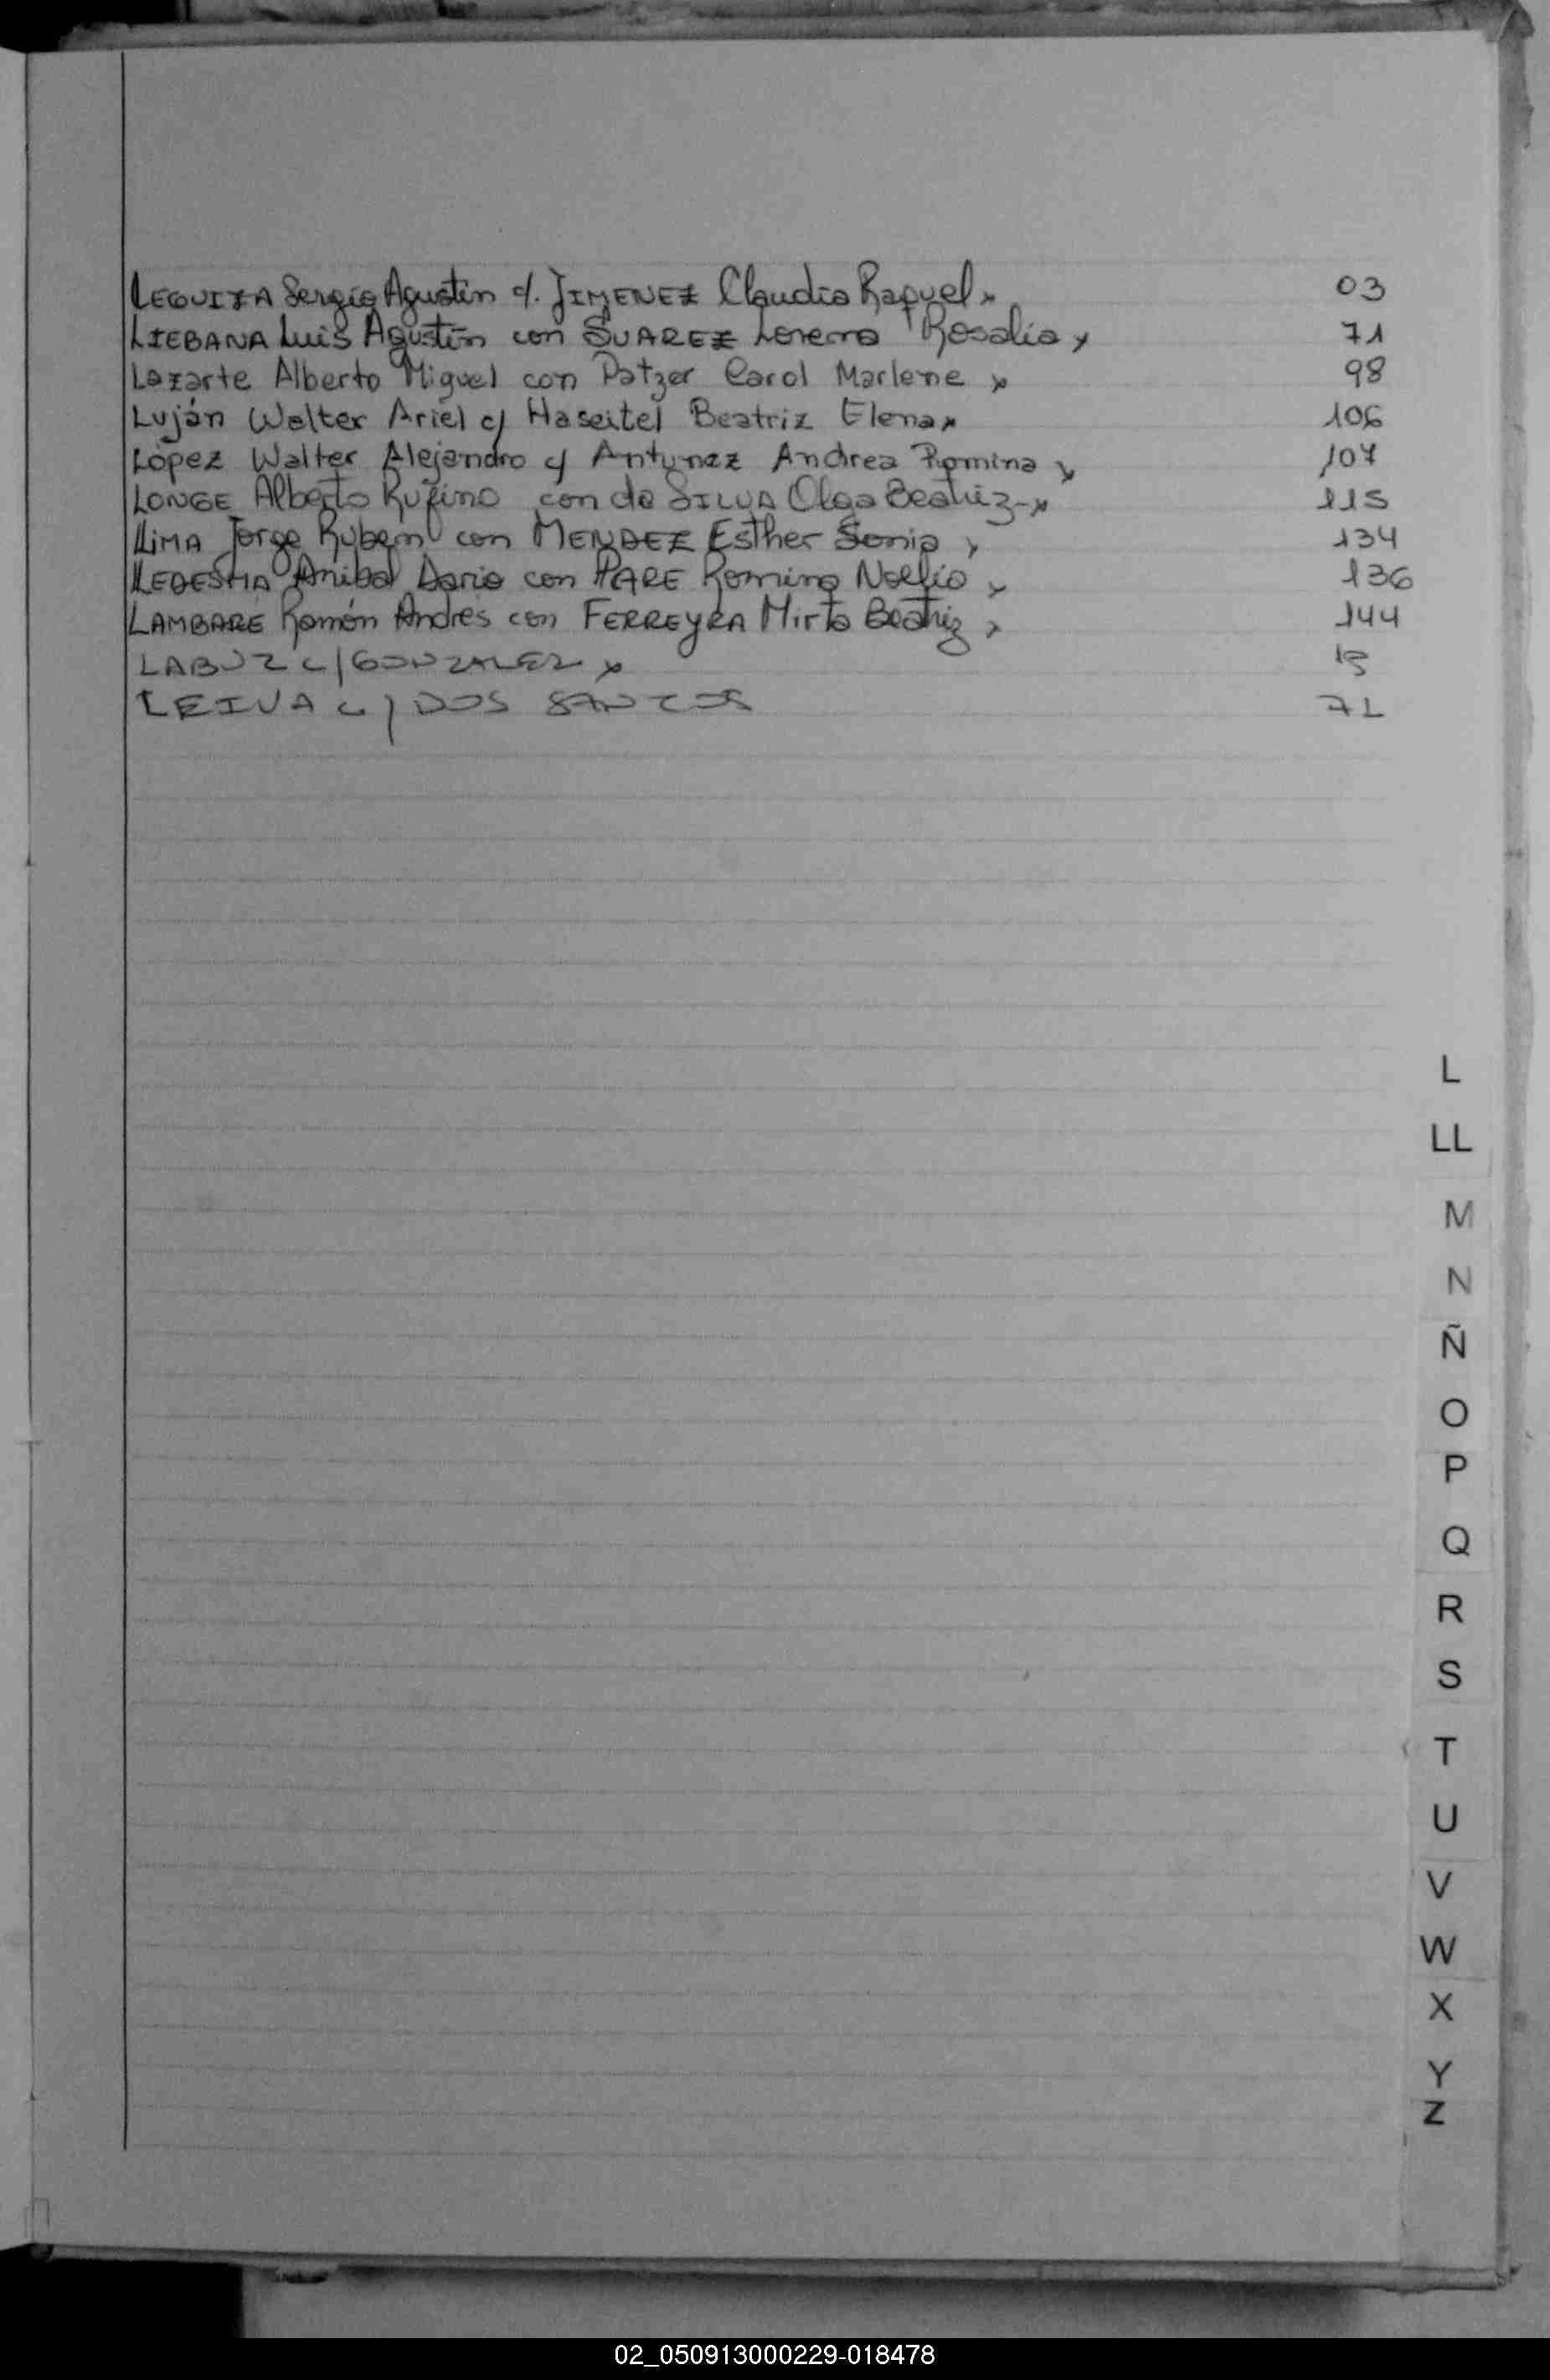 LEGUIZA Sergio Agustin c/. JIMENEZ Claudia Raquel x 03
LIEBANA Luis Agustín con SUAREZ Lorena Rosalia x 71
Lazarte Alberto Miguel con Patzer Carol Marlene x 98
Luján Walter Ariel c/ Haseitel Beatriz Elena x 106
López Walter Alejandro c/ Antunez Andrea Romina x 107
LONGE Alberto Rufino con da SILVA Olga Beatriz-x 115
LiMA Jorge Ruben con MENDEZ Esther Sonia x 134
LEDESMA Anibal Dario con PARE Romina Noelia x 136
LAMBARE Ramón Andres con FERREYRA Mirta Beatriz x 144
LABUZ C/GONZALEZ x
LEIVA C/ DOS SANTOS 71
L
LL
M
N
Ñ
O
P
Q
R
S
T
U
V
W
X
Y
Z
02_050913000229-018478